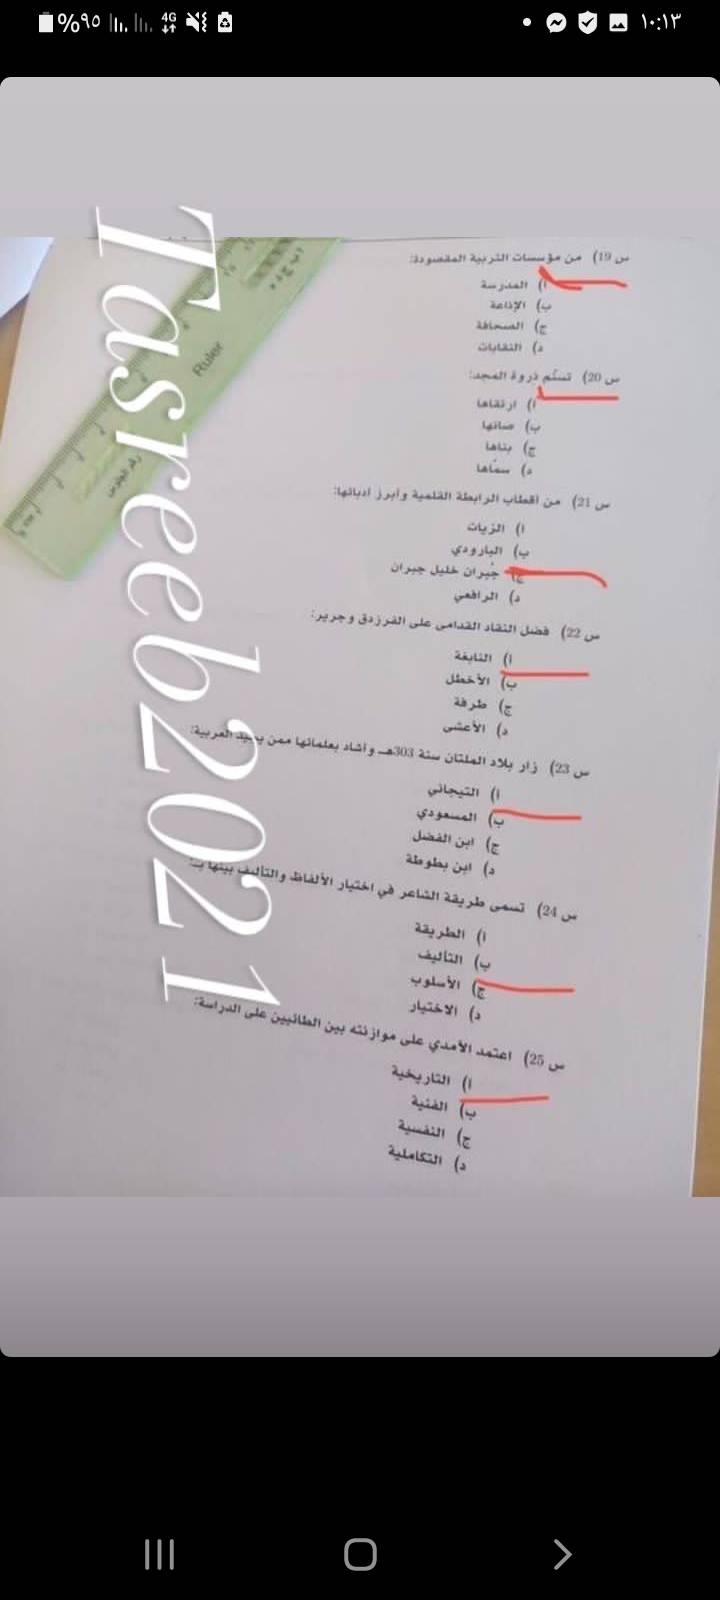 ١٠:١٣
%٩٥
4G
س 19) من مؤسسات التربية المقصودة:
ا) المدرسة
ب) الإذاعة
ج) الصحافة
د) النقابات
س 20) تسنّم ذروة المجد:
ا) ارتقاها
ب) صانها
ج) بناها
د) سمّاها
س 21) من أقطاب الرابطة القلمية وأبرز أدبائها:
ا) الزيات
ب) البارودي
ج) جُبران خليل جبران
د) الرافعي
س 22) فضل النقاد القدامى على الفرزدق وجرير:
ا) النابغة
ب) الأخطل
ج) طرفة
د) الأعشى
س 23) زار بلاد الملتان سنة 303هـ وأشاد بعلمائها ممن يجيد العربية:
ا) التيجاني
ب) المسعودي
ج) ابن الفضل
د) ابن بطوطة
س 24) تسمى طريقة الشاعر في اختيار الألفاظ والتأليف بينها بـ:
ا) الطريقة
ب) التأليف
ج) الأسلوب
د) الاختيار
س 25) اعتمد الأمدي على موازنته بين الطائيين على الدراسة:
ا) التاريخية
ب) الفنية
ج) النفسية
د) التكاملية
Ruler
Tasreeb2021